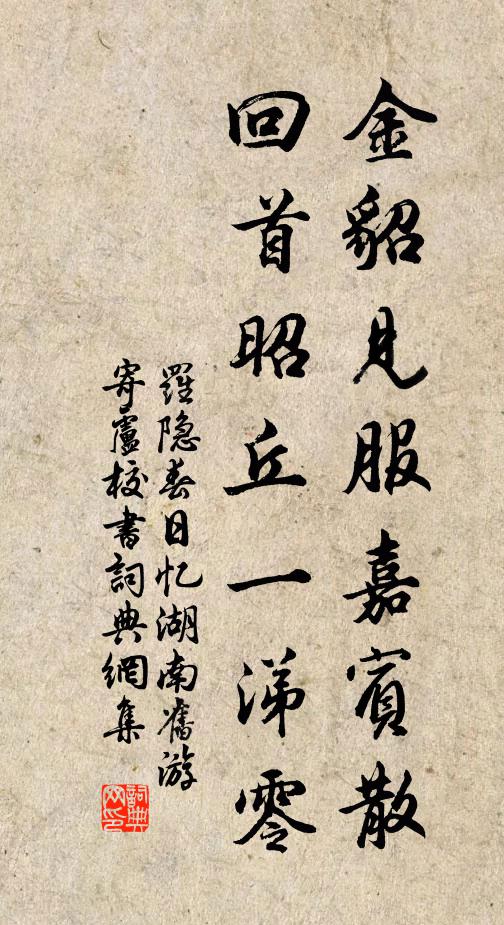 金貂見服嘉賓散
回首昭丘一涕零
羅隐春日忆湖南舊游
寄盧校書詞典網集
詞典
网印